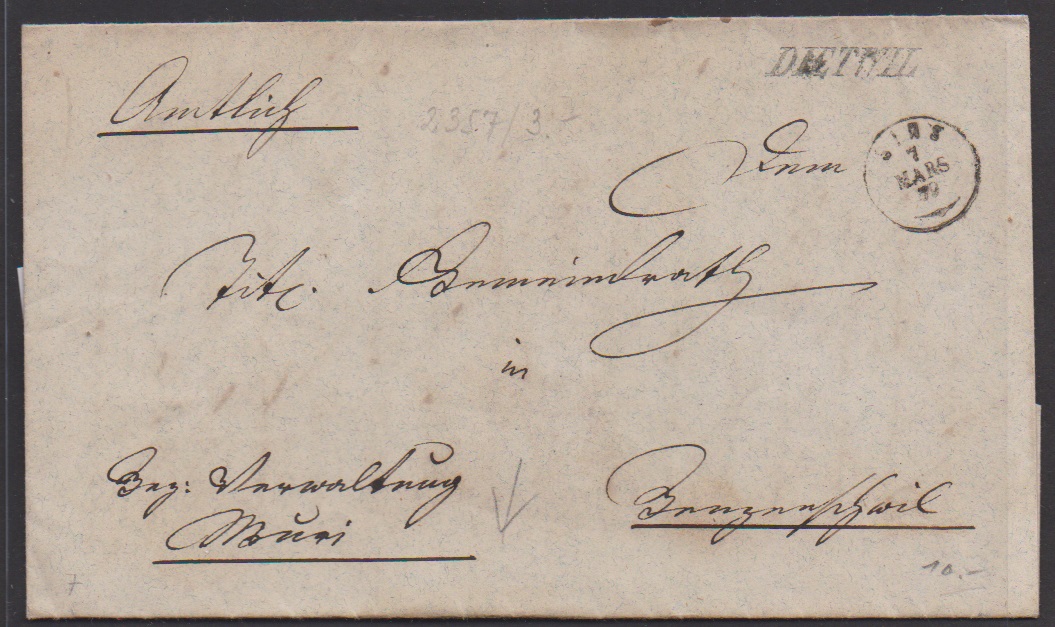 DIETWIL
Amtlich
2357/3.-
Dem
SINS
7
MARS
Titl. Gemeindrath
in
Bez: Verwaltung
Muri
Benzenschwil
10.-
7